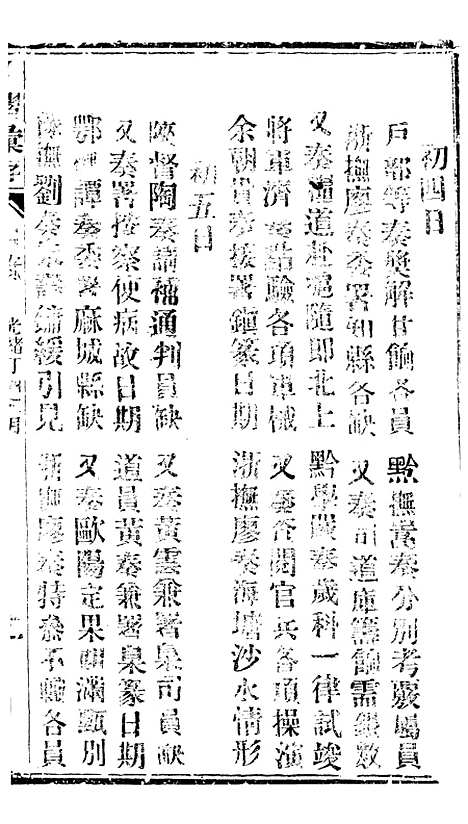 初四日
戶部等奏奬解甘餉各員　黔撫嵩奏分別考覈屬員
浙撫廖奏委署知縣各缺　又奏司道庫籌餉需銀數
又奏瀧道赴滬隨即北上　黔學嚴奏歲科一律試竣
將軍濟奏點驗各項軍械　又奏查閱官兵各項操演
余朝貴奏接署鎭篆日期　浙撫廖奏海塘沙水情形
初五日
陝督陶奏請補通判員缺　又奏黃雲兼署臬司員缺
又奏署按察使病故日期　道員黃奏兼署臬篆日期
鄂督譚奏委署麻城縣缺　又奏歐陽定果期滿甄別
撫劉奏　鏞緩引見　浙撫廖奏特參不職各員
光緖丁酉　月